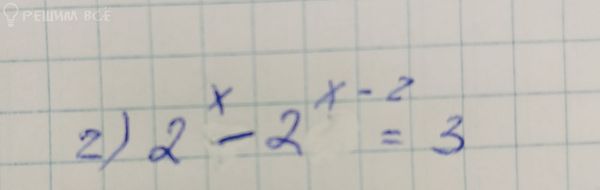 РЕШИМ ВСЁ
г) 2^x - 2^(x-2) = 3